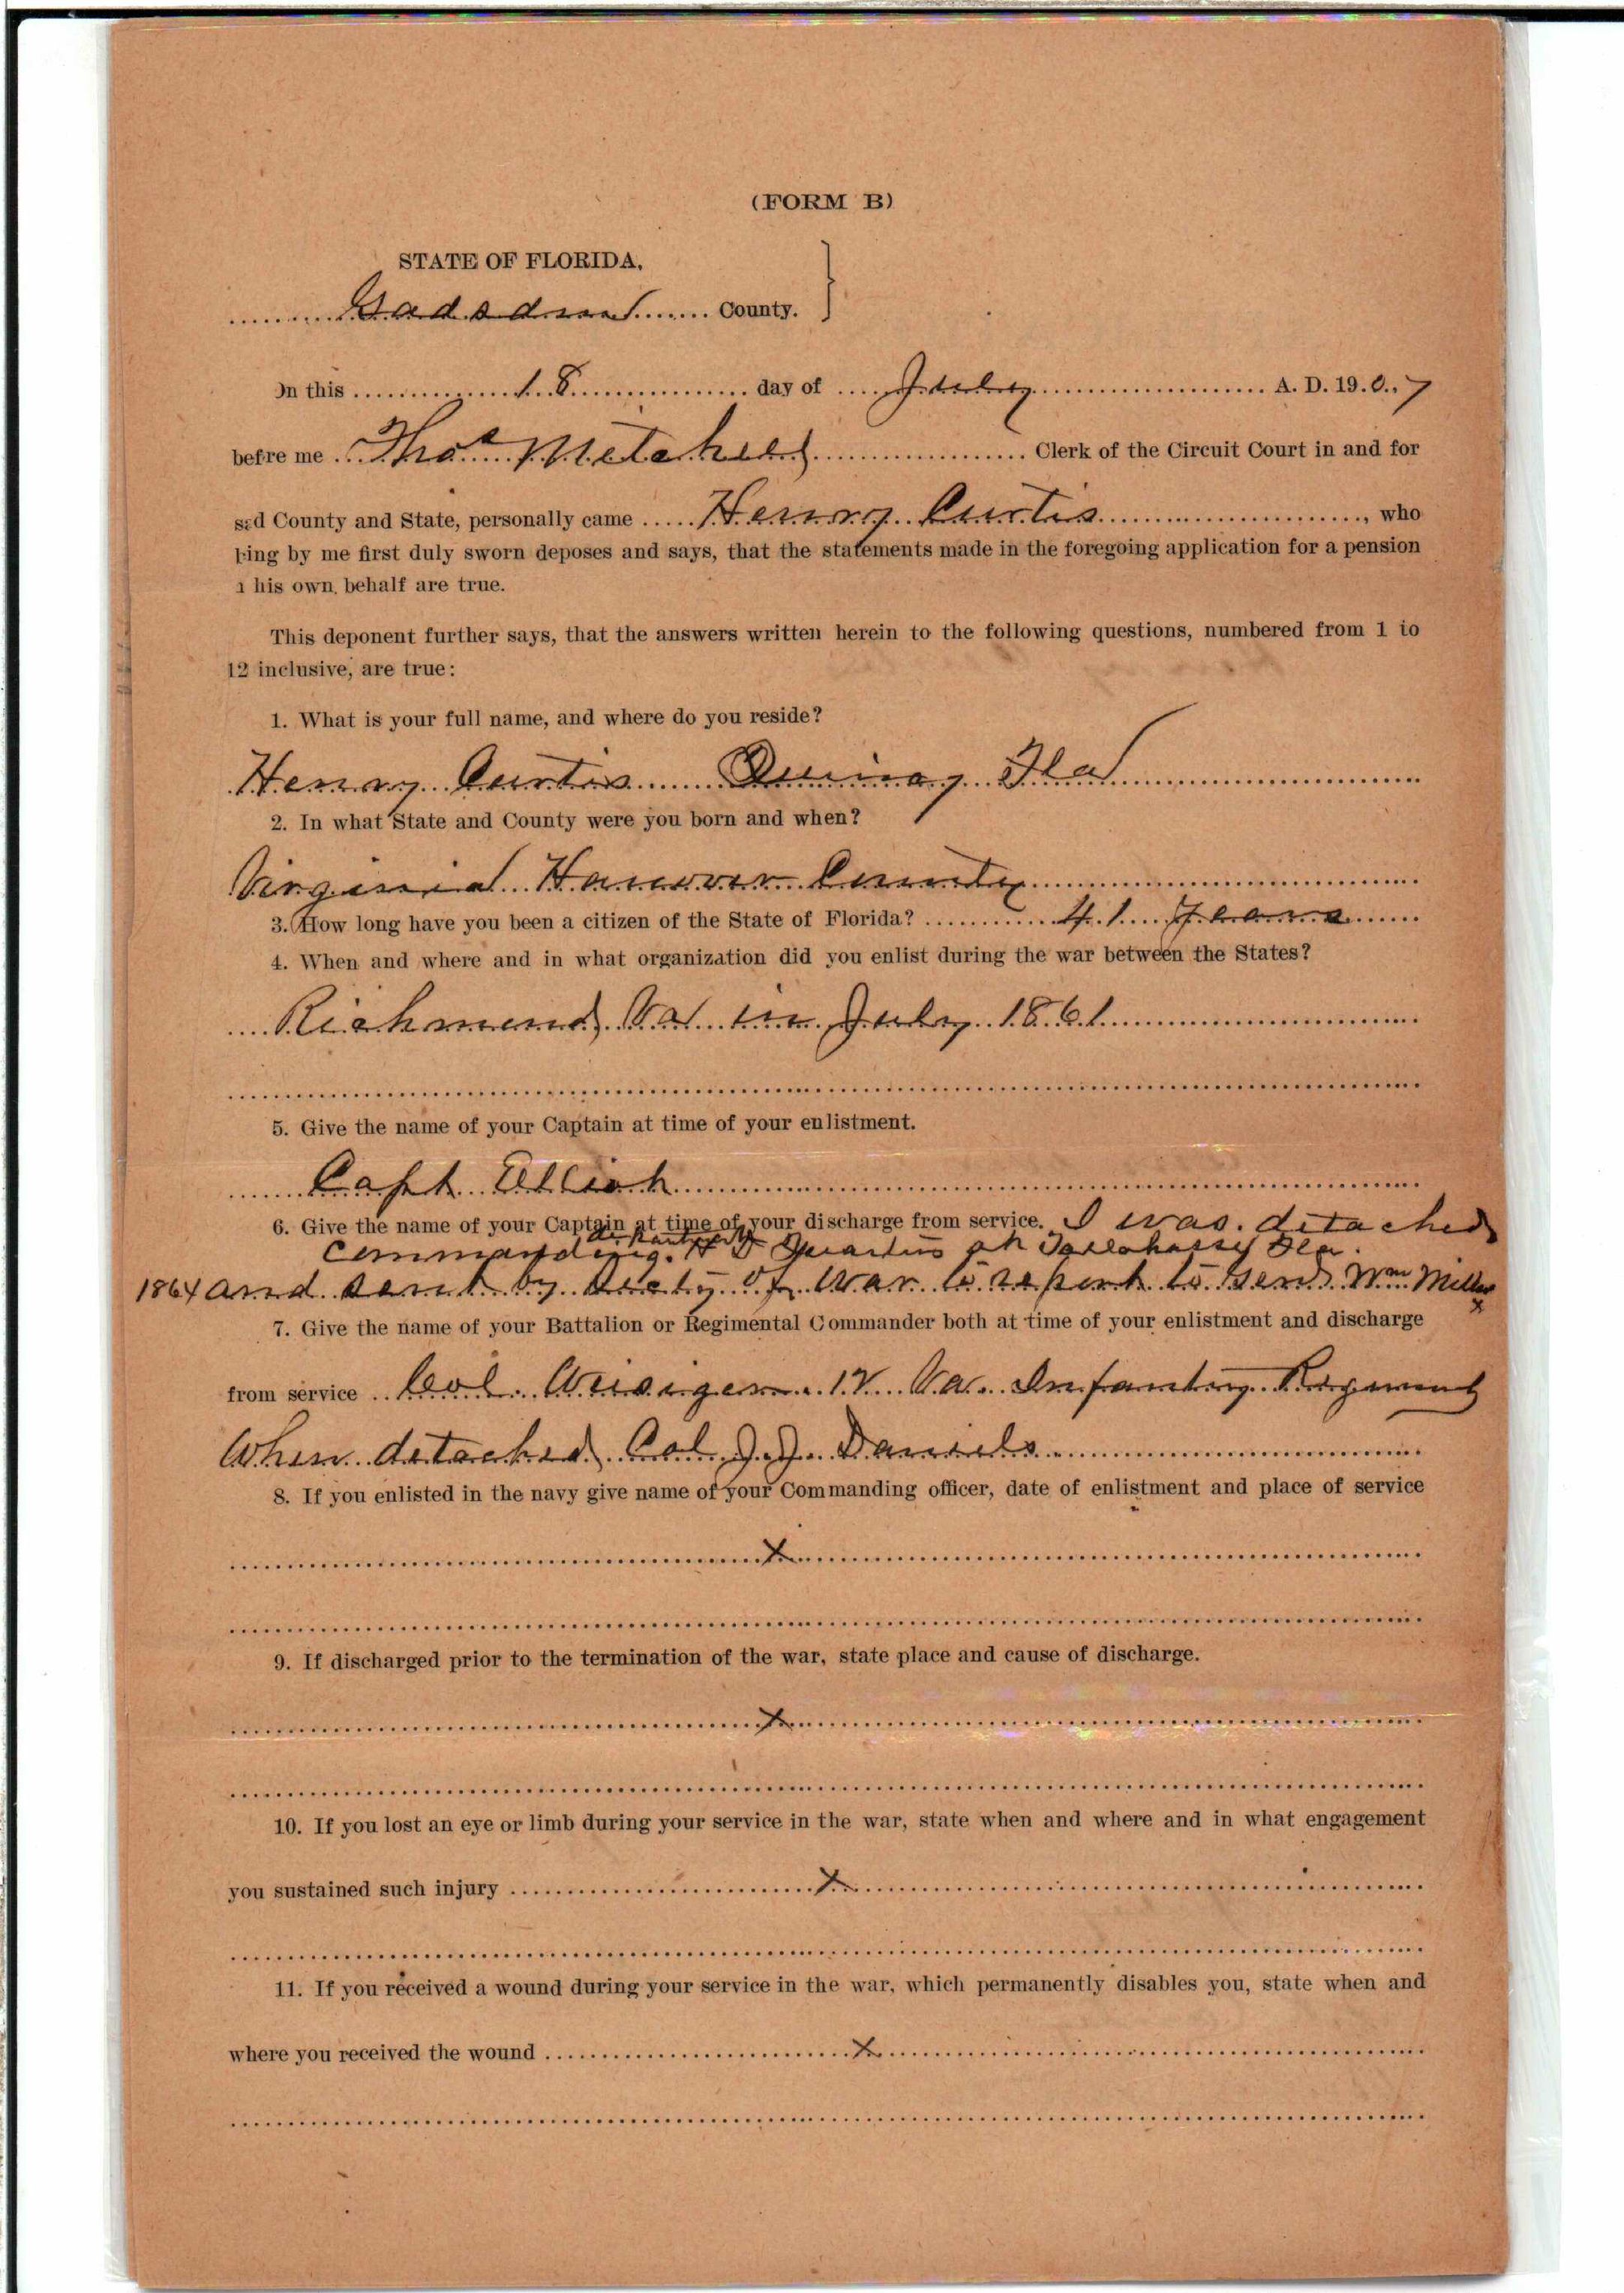 (FORM B)
STATE OF FLORIDA,
Gadsden County.
On this 18 day of July A. D. 1907
before me Thos Mitchell Clerk of the Circuit Court in and for
said County and State, personally came Henry Curtis, who
being by me first duly sworn deposes and says, that the statements made in the foregoing application for a pension
in his own behalf are true.
This deponent further says, that the answers written herein to the following questions, numbered from 1 to
12 inclusive, are true:
1. What is your full name, and where do you reside?
Henry Curtis Quincy Fla
2. In what State and County were you born and when?
Virginia Hanover County
3. How long have you been a citizen of the State of Florida? 41 years
4. When and where and in what organization did you enlist during the war between the States?
Richmond Va in July 1861
5. Give the name of your Captain at time of your enlistment.
Capt Elliot
6. Give the name of your Captain at time of your discharge from service. I was detached
commanding H D Quarters at Tallahassy Fla.
1864 and sent by Secty of War to report to Genl Wm Miller x
7. Give the name of your Battalion or Regimental Commander both at time of your enlistment and discharge
from service Col. Weisiger 12 Va. Infantry Regiment
When detached Col J. J. Daniels
8. If you enlisted in the navy give name of your Commanding officer, date of enlistment and place of service
x
9. If discharged prior to the termination of the war, state place and cause of discharge.
x
10. If you lost an eye or limb during your service in the war, state when and where and in what engagement
you sustained such injury x
11. If you received a wound during your service in the war, which permanently disables you, state when and
where you received the wound x